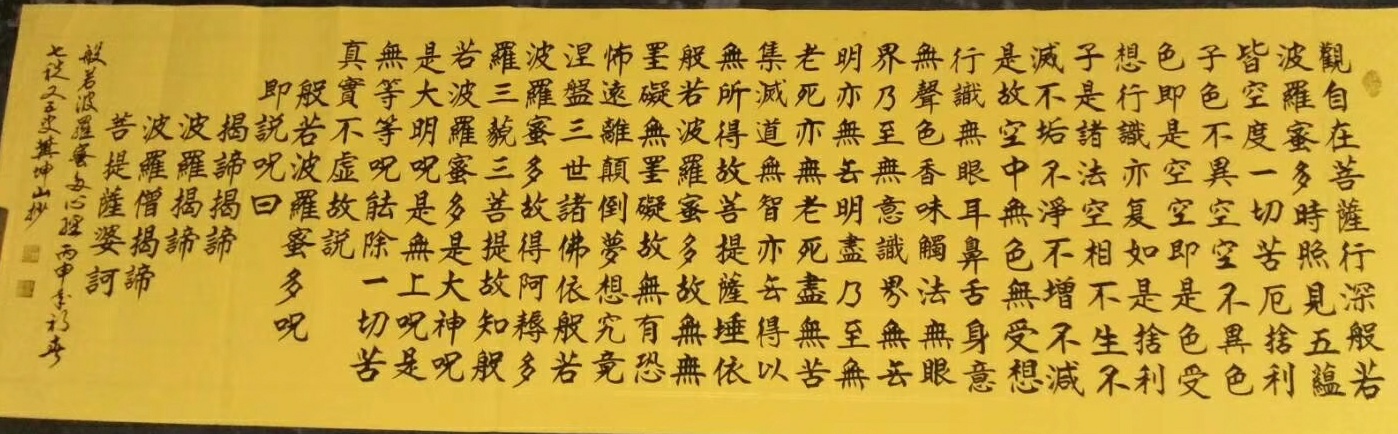 觀自在菩薩行深般若
波羅蜜多時照見五蘊
皆空度一切苦厄捨利
子色不異空空不異色
色即是空空即是色受
想行識亦复如是捨利
子是諸法空相不生不
滅不垢不淨不增不減
是故空中無色無受想
行識無眼耳鼻舌身意
無聲色香味觸法無眼
界乃至無意識界無无
明亦無无明盡乃至無
老死亦無老死盡無苦
集滅道無智亦无得以
無所得故菩提薩埵依
般若波羅蜜多故無無
罣礙無罣礙故無有恐
怖遠離顛倒夢想究竟
涅盤三世諸佛依般若
波羅蜜多故得阿耨多
羅三藐三菩提故知般
若波羅蜜多是大神呪
是大明呪是無上呪是
無等等呪能除一切苦
真實不虛故説
般若波羅蜜多呪
即説呪曰
揭諦揭諦
波羅揭諦
波羅僧揭諦
菩提薩婆訶
般若波羅蜜多心經 丙申春
七又五叟樊坤山抄